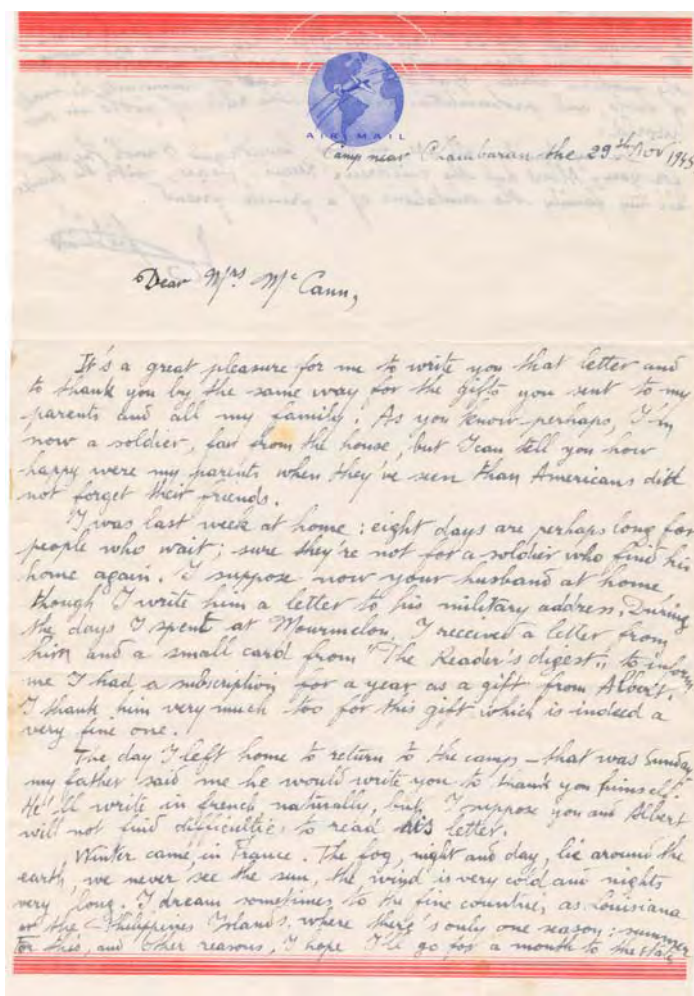 AIR MAIL
Camp near Chambaran the 29th Nov 1945
Dear Mrs Mc Cann,
It's a great pleasure for me to write you that letter and
to thank you by the same way for the gifts you sent to my
parents and all my family. As you know perhaps, I'm
now a soldier, far from the house, but I can tell you how
happy were my parents when they've seen than Americans did
not forget their friends.
I was last week at home : eight days are perhaps long for
people who wait ; sure they're not for a soldier who find his
home again. I suppose now your husband at home
though I write him a letter to his military address. During
the days I spent at Mourmelon, I received a letter from
him and a small card from "The Reader's digest" to inform
me I had a subscription for a year as a gift from Albert.
I thank him very much too for this gift which is indeed a
very fine one.
The day I left home to return to the camps – that was Sunday
my father said me he would write you to thank you himself.
He'll write in french naturally, but I suppose you and Albert
will not find difficulties to read his letter.
Winter came in France. The fog, night and day, lie around the
earth, we never see the sun, the wind is very cold and nights
very long. I dream sometimes to the fine countries, as Louisiana
or the Philippines Islands, where there's only one season : summer
For this, and other reasons, I hope I'll go for a month to the States